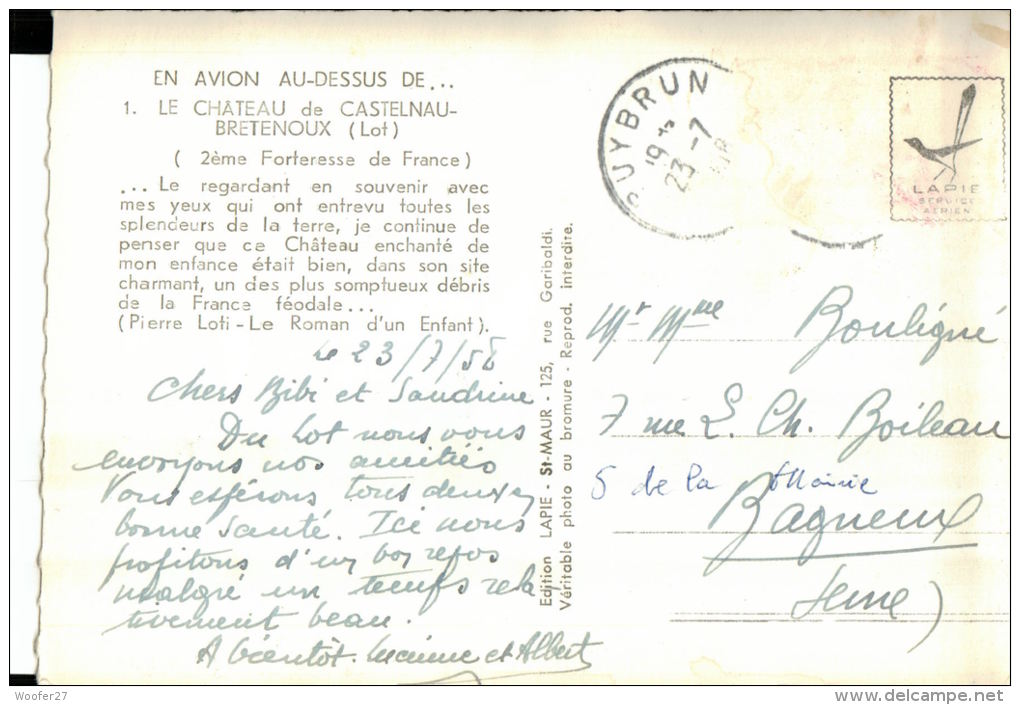 EN AVION AU-DESSUS DE...
1. LE CHÂTEAU de CASTELNAU-
BRETENOUX (Lot)
( 2ème Forteresse de France )
... Le regardant en souvenir avec
mes yeux qui ont entrevu toutes les
splendeurs de la terre, je continue de
penser que ce Château enchanté de
mon enfance était bien, dans son site
charmant, un des plus somptueux débris
de la France féodale...
(Pierre Loti - Le Roman d'un Enfant).
Le 23/7/58
Chers Bibi et Sandrine
Du Lot nous vous
envoyons nos amitiés
Vous espérons tous deux en
bonne santé. Ici nous
profitons d'un bon repos
malgré un temps rela
tivement beau.
A bientôt. Lucienne et Albert
Edition LAPIE - St-MAUR - 125, rue Garibaldi.
Véritable photo au bromure - Reprod. interdite.
PUYBRUN
19 H
23 - 7
LAPIE
SERVICE
AERIEN
Mr Mme Bouligné
7 rue L. Ch. Boileau
5 de la Mairie
Bagneux
Seine)
Woofer27
delcampe.net